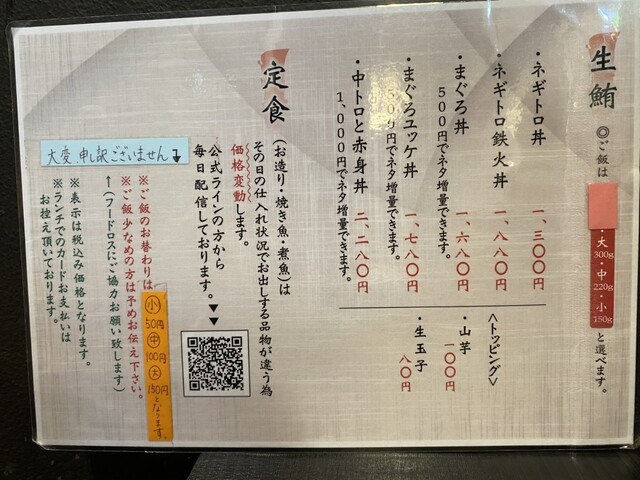 生鮪
◎ご飯は
・大300g・中220g・小150g
と選べます。
・ネギトロ丼 一、三〇〇円
・ネギトロ鉄火丼 一、八八〇円
・まぐろ丼 一、六八〇円
500円でネタ増量できます。
・まぐろユッケ丼 一、七八〇円
500円でネタ増量できます。
・中トロと赤身丼 二、二八〇円
1,000円でネタ増量できます。
<トッピング>
・山芋 一〇〇円
・生玉子 八〇円
定食
(お造り・焼き魚・煮魚)は
その日の仕入れ状況でお出しする品物が違う為
価格変動します。
公式ラインの方から
毎日配信しております。▼▼
大変申し訳ございません↴
※ご飯のお替わりは
小50円 中100円 大150円となります。
※ご飯少なめの方は予めお伝え下さい。
↑(フードロスにご協力お願い致します)
※表示は税込み価格となります。
※ランチでのカードお支払いは
お控え頂いております。